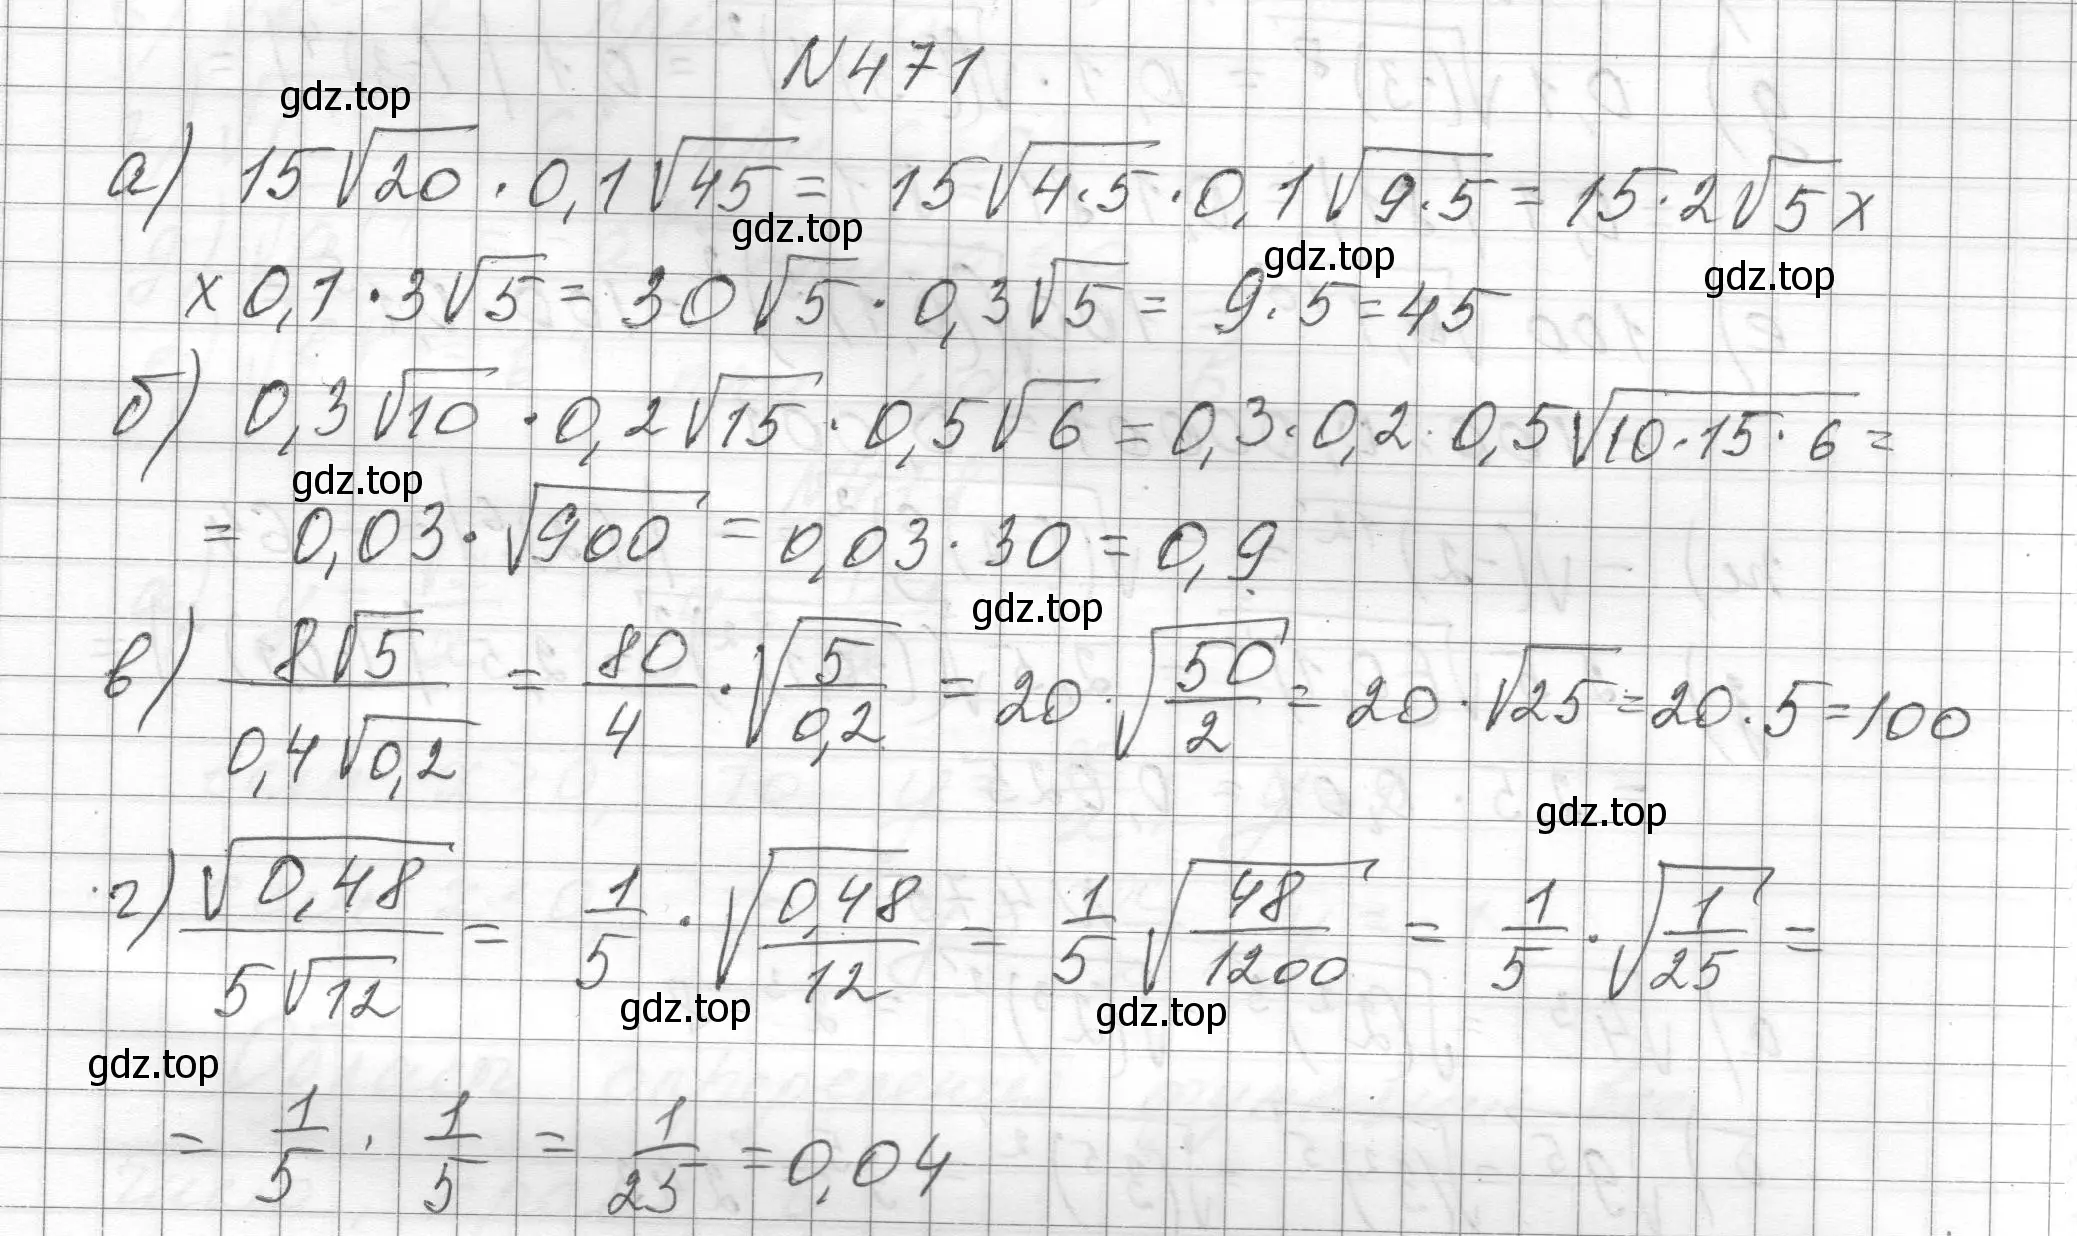 N471
gdz.top
а) 15√20 · 0,1√45 = 15√4·5 · 0,1√9·5 = 15·2√5 х
gdz.top gdz.top gdz.top
х 0,1 · 3√5 = 30√5 · 0,3√5 = 9·5 = 45
б) 0,3√10 · 0,2√15 · 0,5√6 = 0,3·0,2·0,5√10·15·6 =
gdz.top
= 0,03 · √900 = 0,03 · 30 = 0,9
gdz.top
в) 8√5 / 0,4√0,2 = 80/4 · √5/0,2 = 20 · √50/2 = 20 · √25 = 20·5 = 100
gdz.top
г) √0,48 / 5√12 = 1/5 · √0,48/12 = 1/5 √48/1200 = 1/5 · √1/25 =
gdz.top gdz.top
gdz.top
= 1/5 · 1/5 = 1/25 = 0,04